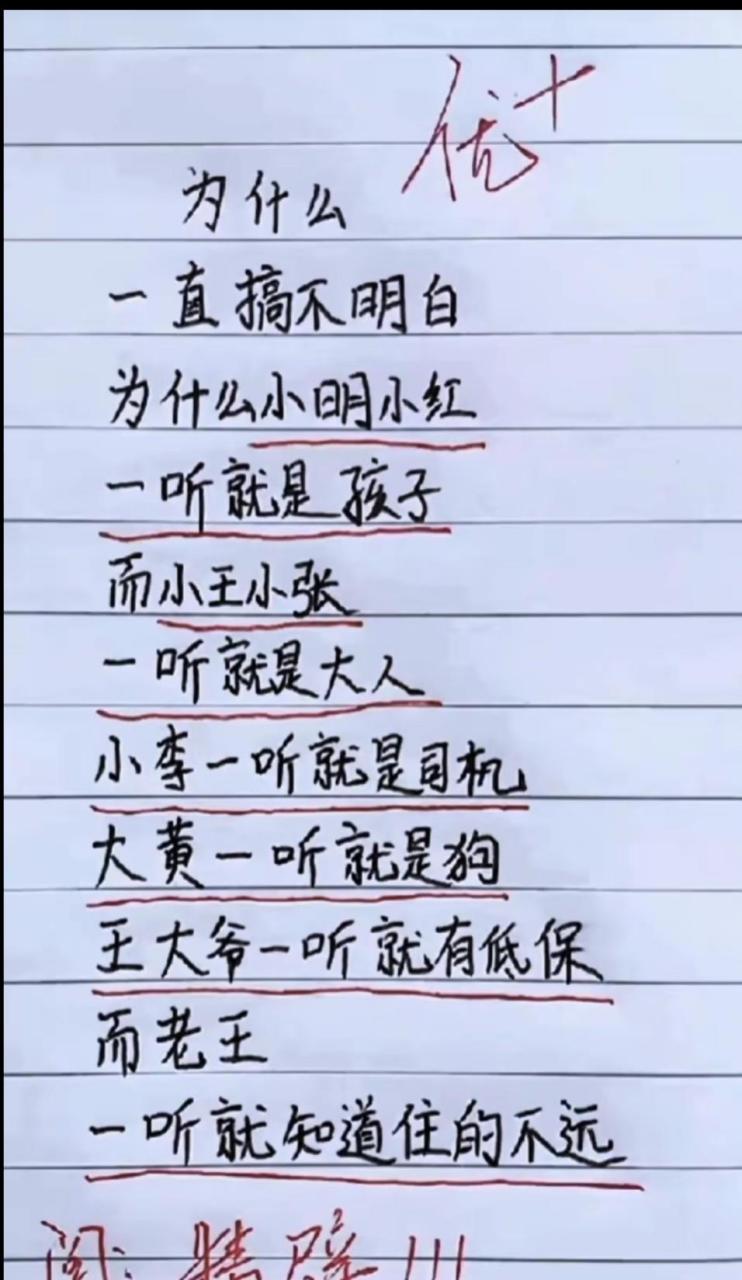 优+
为什么
一直搞不明白
为什么小明小红
一听就是孩子
而小王小张
一听就是大人
小李一听就是司机
大黄一听就是狗
王大爷一听就有低保
而老王
一听就知道住的不远
阅:精辟!!!